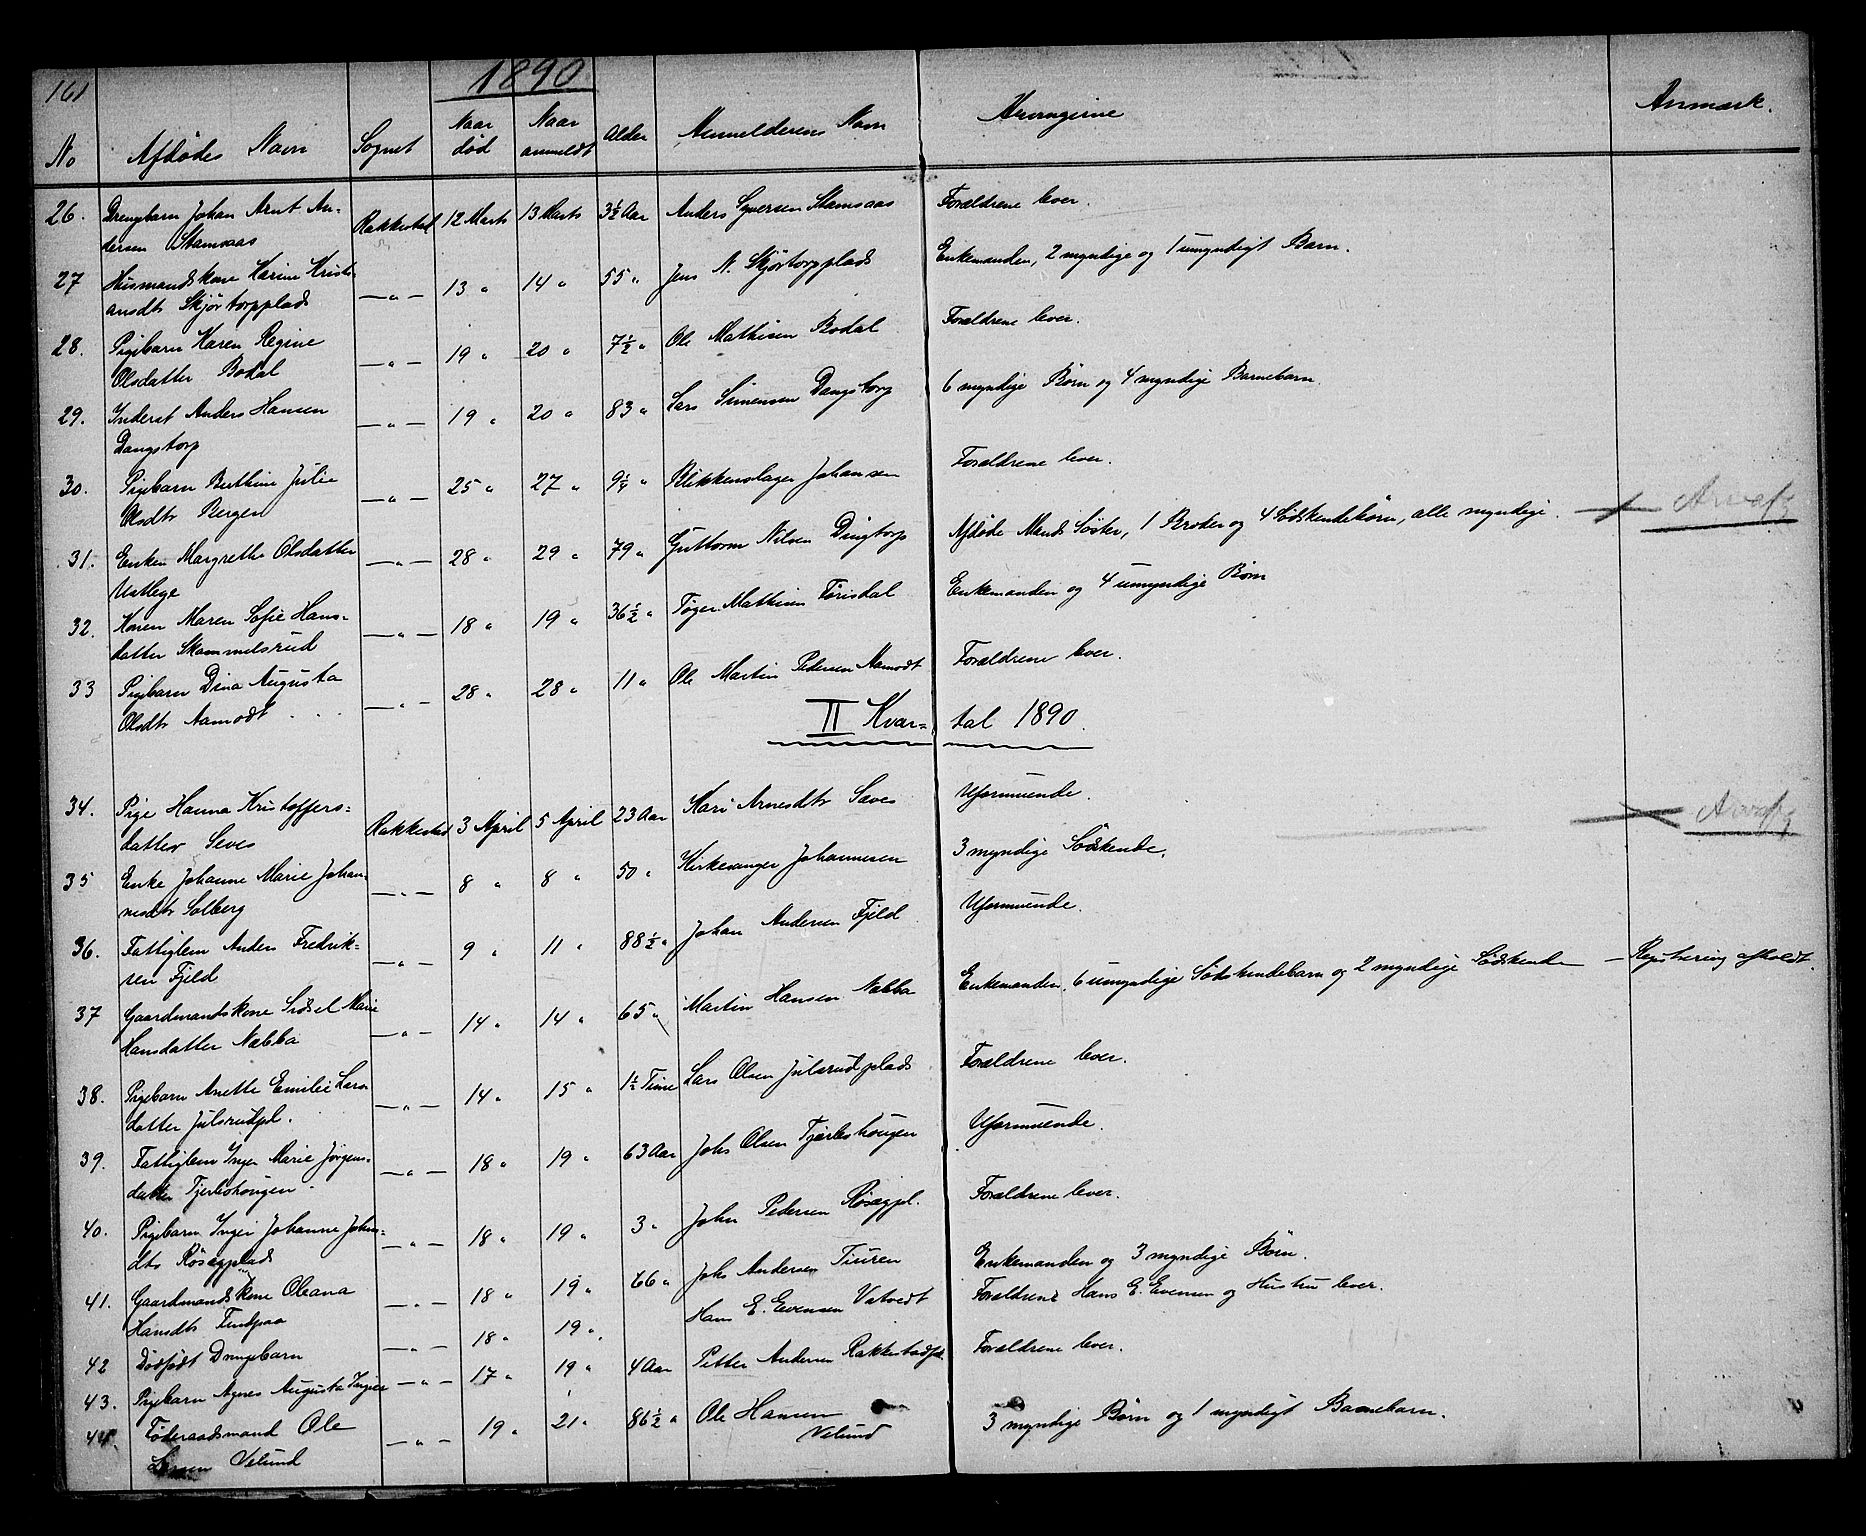 161
1890
No Afdødes Navn Sognet Naar død Naar anmeldt Alder Anmelderens Navn Arvingerne Anmærk.
26. Drengbarn Johan Arnt An-
dersen Stamsaas Rakkestad 12 Marts 13 Marts 3½ Aar Anders Syversen Stamsaas Forældrene lever.
27 Husmandskone Karine Kristi-
ansdtr Skjørtorpplads —„— 13 „ 14 „ 55 „ Jens N. Skjørtorpplads Enkemanden, 2 myndige og 1 umyndigt Barn.
28. Pigebarn Karen Regine
Olsdatter Bodal —„— 19 „ 20 „ 7½ „ Ole Mathisen Bodal Forældrene lever.
29. Inderst Anders Hansen
Dangstorp —„— 19 „ 20 „ 83 „ Lars Simensen Dangstorp 6 myndige Børn og 4 myndige Barnebarn.
30. Pigebarn Berthine Julie
Olsdtr Bergen —„— 25 „ 27 „ 9¼ „ Blikkenslager Johansen Forældrene lever.
31. Enken Margrethe Olsdatter
—„— 28 „ 29 „ 79 „ Guttorm Nilsen Dingtorp Afdøde Mands Søster, 1 Broder og 4 Sødskendebørn, alle myndige. Arvefg
32. Konen Maren Sofie Hans-
datter Skammelsrud —„— 18 „ 19 „ 36½ „ Tøger MathisenFørisdal Enkemanden og 4 umyndige Børn
33 Pigebarn Dina Augusta
Olsdtr Aamodt —„— 28 „ 28 „ 11 „ Ole Martin Pedersen Aamodt Forældrene lever.
II Kvar- tal 1890.
34. Pige Hanna Kristoffers-
datter Seves Rakkestad 3 April 5 April 23 Aar Kari Arnesdtr Sæves Uformuende. Arvefg
35 Enke Johanne Marie Johan-
nesdtr Solberg —„— 8 „ 8 „ 50 „ Kirkesanger Johannesen 3 myndige Sødskende.
36. Fattiglem Anders Fredrik-
sen Fjeld —„— 9 „ 11 „ 88½ „ Johan Andersen Fjeld Uformuende.
37 Gaardmandskone Sidsel Marie
Hansdatter Næbba —„— 14 „ 14 „ 65 „ Martin Hansen Næbba Enkemanden, 6 umyndige Sødskendebarn og 2 myndige Sødskende — Registrering afholdt.
38. Pigebarn Anette Emilie Lars-
datter Julsrudpl. —„— 14 „ 15 „ 1½ Time Lars Olsen Julsrudplads Forældrene lever.
39. Fattiglem Inger Marie Jørgens-
datter Tjerbohougen —„— 18 „ 19 „ 63 Aar Johs Olsen Tjærbohougen Uformuende.
40. Pigebarn Inger Johanne Johns-
dtr Røsægplads —„— 18 „ 19 „ 3 „ John Pedersen Røsægpl. Forældrene lever.
41. Gaardmandskone Oleana
Hansdtr —„— 18 „ 19 „ 66 „ Johs Andersen Tiuren Enkemanden og 3 myndige Børn.
42 Dødfødt Drengebarn —„— 18 „ 19 „ Hans E. Evensen Vatvedt Forældrene Hans E. Evensen og Hustru lever.
43. Pigebarn Agnes Augusta —„— 17 „ 19 „ 4 Aar Petter Andersen Rakkestad Forældrene lever.
44. Føderaadsmand Ole
Larsen Velund —„— 19 „ 21 „ 86½ „ Ole Hansen
Velund 3 myndige Børn og 1 myndigt Barnebarn.